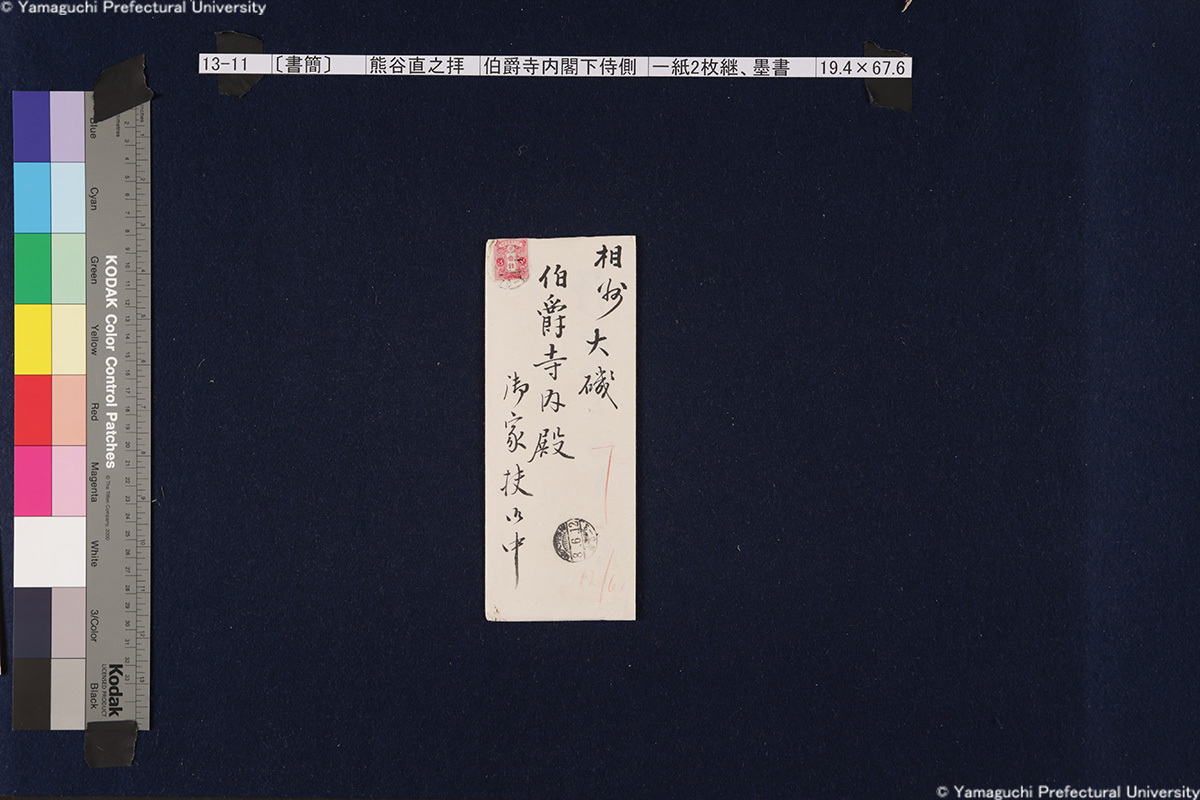 © Yamaguchi Prefectural University
13-11 〔書簡〕 熊谷直之拝 伯爵寺内閣下侍側 一紙2枚継、墨書 19.4×67.6
相州大磯
伯爵寺内殿
御家扶御中
8.6.12
7
12/6
Blue
Cyan
Green
Yellow
Red
Magenta
White
3/Color
Black
KODAK Color Control Patches
© The Tiffen Company, 2000
Kodak
LICENSED PRODUCT
© Yamaguchi Prefectural University